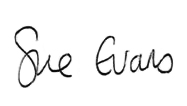 Sue Evans